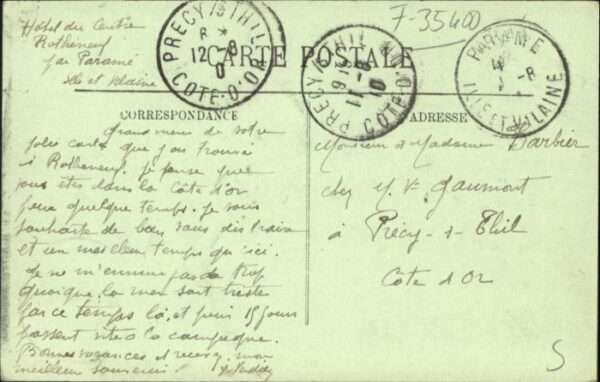 Hôtel du Centre
Rothéneuf
par Paramé
Ille et Vilaine
F-35400
PRÉCY-S-THIL
12-8
COTE-D'OR
PRÉCY-S-THIL
COTE-D'OR
PARAMÉ
ILLE-ET-VILAINE
CARTE POSTALE
CORRESPONDANCE
ADRESSE
Grand merci de votre
jolie carte que j'ai trouvé
à Rothéneuf. Je pense que
vous êtes dans la Côte d'or
pour quelque temps. Je vous
souhaite de bien vous distraire
et un meilleur temps qu'ici.
Je ne m'ennuie pas trop
quoique la mer soit triste
par ce temps là, et puis 15 jours
passent vite à la campagne.
Bonnes vacances et recevez mon
meilleur souvenir.
Monsieur et Madame Barbier
chez M. Ve Gaumont
à Précy-s-Thil
Côte d'Or
5